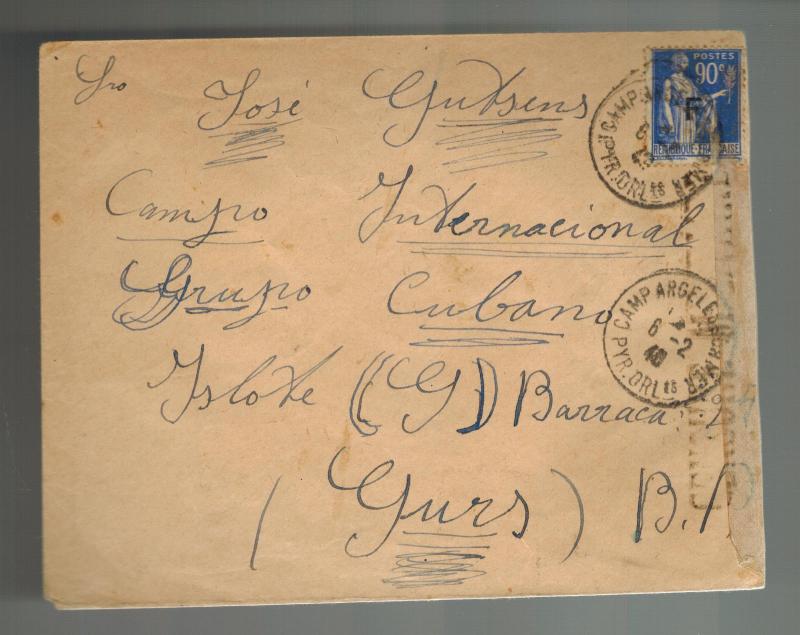 Sro José Gutsens
Campo Internacional
Grupo Cubano
Islote (G) Barraca
(Gurs) B.
POSTES
90c
F
REPUBLIQUE-FRANCAISE
CAMP
PYR. ORLes
CAMP ARGELES
6 -2
40
PYR. ORLes